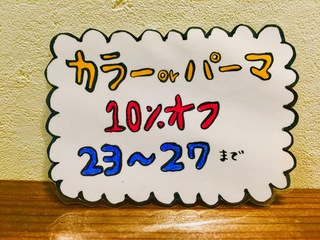 カラーorパーマ
10%オフ
23〜27まで